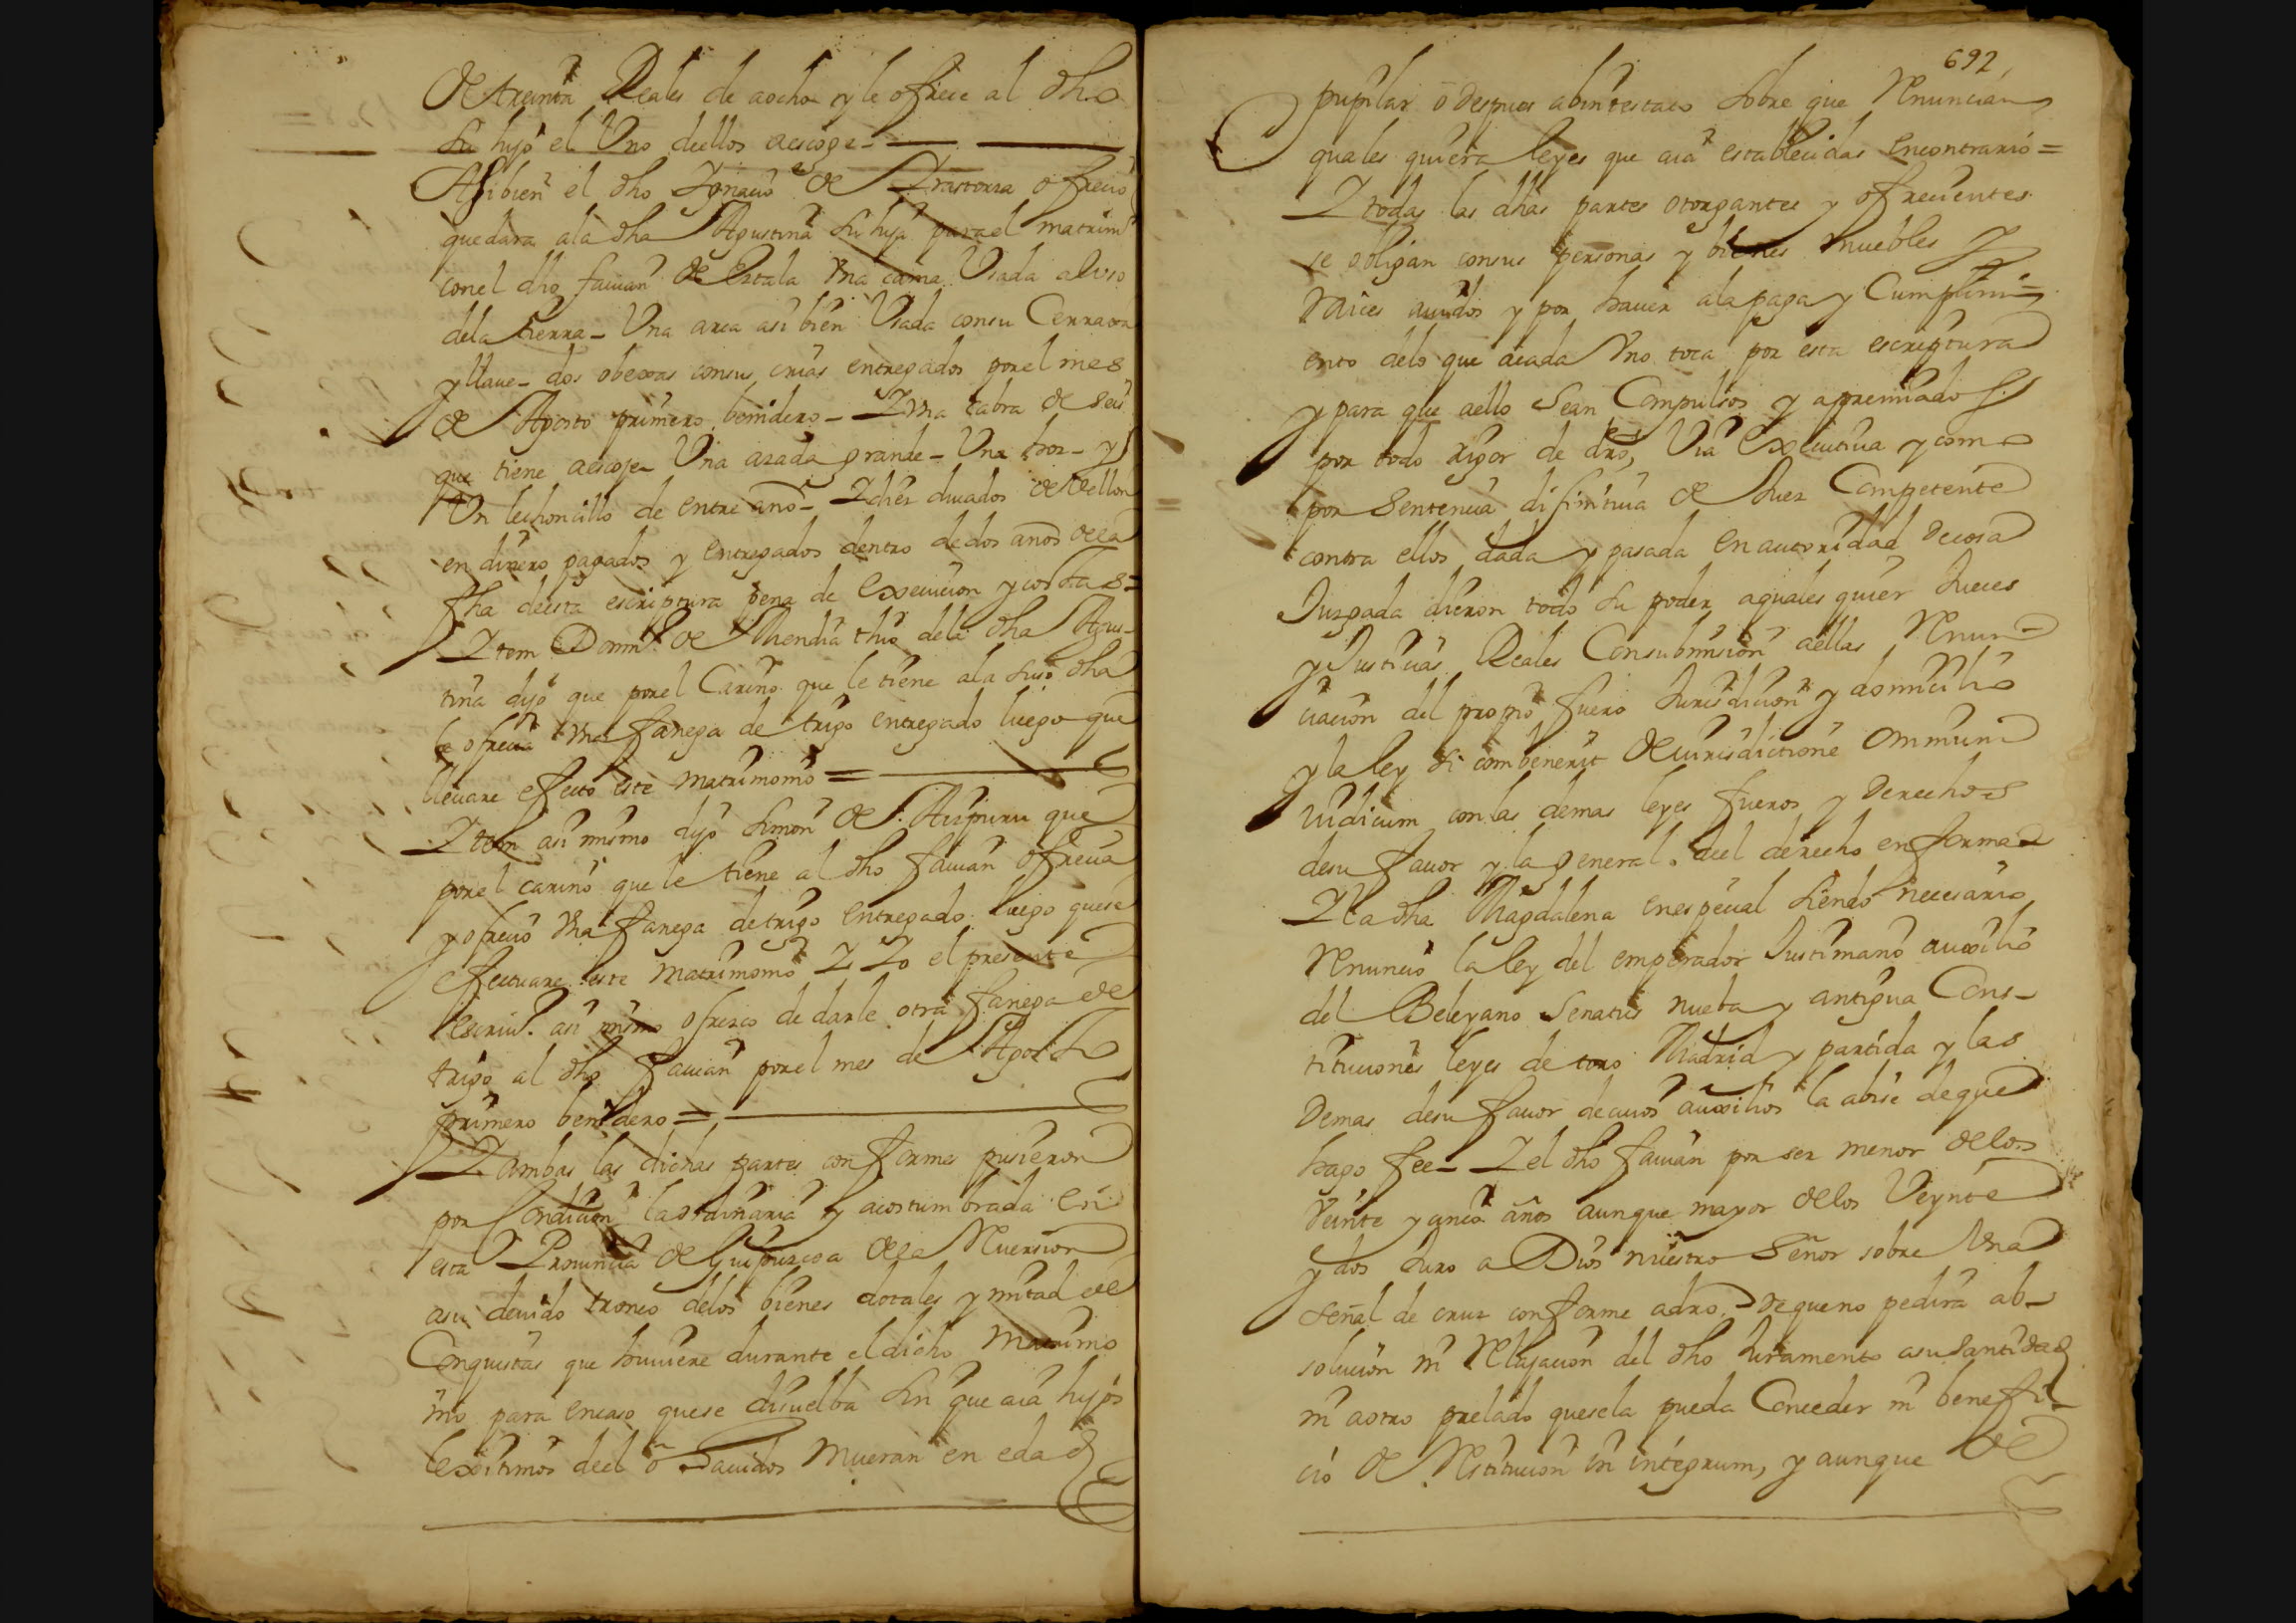 de treinta Reales de aocho y le ofrece al dho
su hijo el Uno deellos aescoge
Asi bien el dho Ygnacio de Yrastorza ofrecio
quedara ala dha Agustina su hija para el matrim.º
con el dho fauian de Estala Vna cama Vsada al vso
dela tierra - Vna arca asi bien Vsada consu Cerraxa
y llaue - dos obexas consus crias entregados por el mes
de Agosto primero benidero - Y Vna cabra de seis
que tiene aescoje - Vna azada grande - Vna hoz - y
Vn lechoncillo de entre año - Y dies ducados de Vellon
en dinero pagados y entregados dentro de dos años dela
fha deesta escriptura pena de execucion y costas =
Ytem Dom.º de Mendia thio dela dha Agus-
tina dijo que por el Cariño que le tiene ala suso dha
le ofrecia Vna fanega de trigo entregado luego que
lleuare efecto este matrimonio =
Ytem asi mismo dijo Simon de Aizpuru que
por el cariño que le tiene al dho fauian ofrecia
y ofrecio Vna fanega de trigo entregado luego quese
efectuare este matrimonio Y Yo el presente
escriu.º asi mismo ofrezco de darle otra fanega de
trigo al dho fauian por el mes de Agosto
primero benidero =
Y ambas las dichas partes conformes pusieron
por Condicion la ordinaria y acostumbrada en
esta Prouincia de Guipuzcoa dela Reuersion
asu deuido tronco delos bienes dotales y mitad de
Conquistas que huuiere durante el dicho Matrimo
nio para encaso quese disuelba sin que aia hijos
lexitimos deel o Hauidos mueran en edad
692
pupilar o despues abintestato sobre que Renuncian
quales quiera leyes que aia establecidas encontrario =
Y todas las dhas partes otorgantes y ofrecientes
se obligan consus personas y bienes muebles y
Raices auidos y por hauer ala paga y Cumplimi=
ento delo que acada Vno toca por esta escriptura
y para que aello sean Compulsos y apremiados
por todo rigor de dro, Via executiua y como
por sentencia difinitiua de Juez Competente
contra ellos dada y pasada en autoridad de cosa
Juzgada dieron todo su poder aquales quier Jueces
y Justicias Reales Consubmision aellas Renun=
ciacion del propio fuero Jurisdicion y domicilio
y la ley si combenerit de iurisdictione Ommnium
iudicum con las demas leyes fueros y derechos
desu fauor y la general deel derecho en forma
Y la dha Magdalena enespecial siendo necesario
Renuncio la ley del emperador Justiniano auxilio
del Beleyano Senatus nueba y antigua Cons-
tituciones leyes de toro Madrid y partida y las
demas desu fauor decuios auxilios la abise de que
hago fee - Y el dho fauian por ser menor delos
Veinte y cinco años aunque mayor delos Veynte
y dos Juro a Dios nuestro Señor sobre Vna
señal de cruz conforme adro, dequeno pedira ab-
solucion ni Relajacion del dho Juramento asu santidad
ni aotro prelado quesela pueda Conceder ni benefi-
cio de Restitucion in integrum, y aunque de